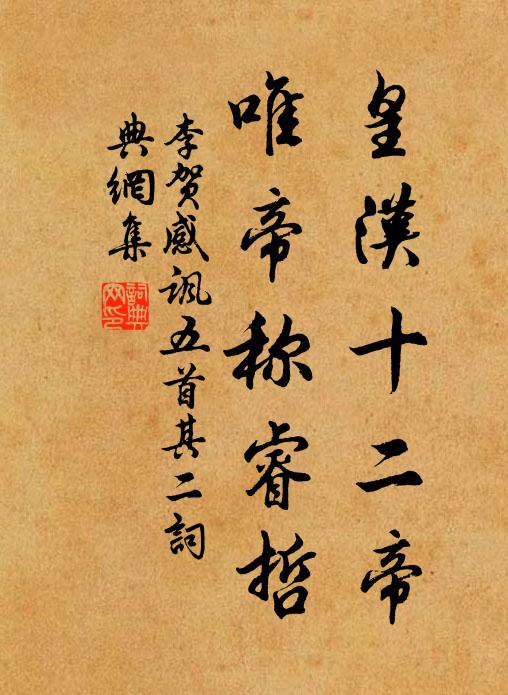 皇漢十二帝
唯帝称睿哲
李贺感諷五首其二詞
典網集
詞典
网印